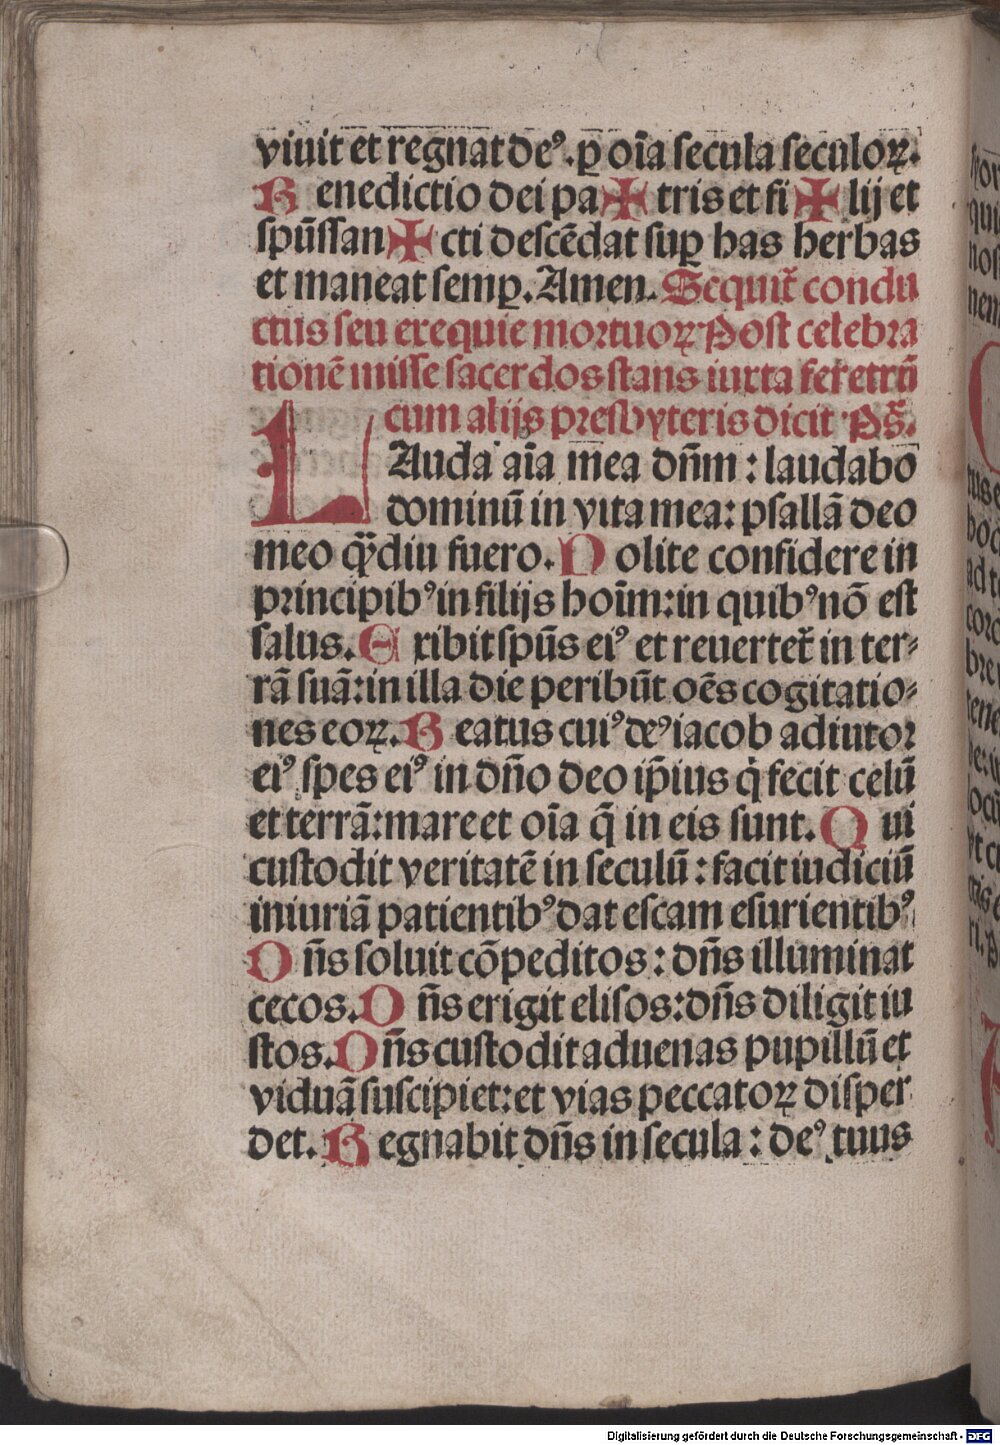 viuit et regnat deꝰ. ꝑ oīa secula seculoꝝ.
Benedictio dei pa✠tris et fi✠lij et
spūssan✠cti descēdat suꝑ has herbas
et maneat semꝑ. Amen. Sequit̃ condu
ctus seu exequie mortuoꝝ Post celebra
tionē misse sacerdos stans iuxta feretrū
cum alijs presbyteris dicit Ps̃.
LAuda aīa mea dn̄m : laudabo
dominū in vita mea: psallā deo
meo qͣ̄diu fuero. Nolite confidere in
principibꝰ in filijs hoīm: in quibꝰ nō est
salus. Exibit spūs eiꝰ et reuertet̃ in ter⸗
rā suā: in illa die peribūt oēs cogitatio⸗
nes eoꝝ. Beatus cuiꝰ deꝰ iacob adiutor
eiꝰ spes eiꝰ in dn̄o deo ip̄ius q̇ fecit celū
et terrā: mare et oīa q̄ in eis sunt. Qui
custodit veritatē in seculū : facit iudiciū
iniuriā patientibꝰ dat escam esurientibꝰ
Dn̄s soluit cōpeditos : dn̄s illuminat
cecos. Dn̄s erigit elisos: dn̄s diligit iu
stos. Dn̄s custodit aduenas pupillū et
viduā suscipiet: et vias peccatoꝝ disper
det. Regnabit dn̄s in secula : deꝰ tuus
Digitalisierung gefördert durch die Deutsche Forschungsgemeinschaft - DFG